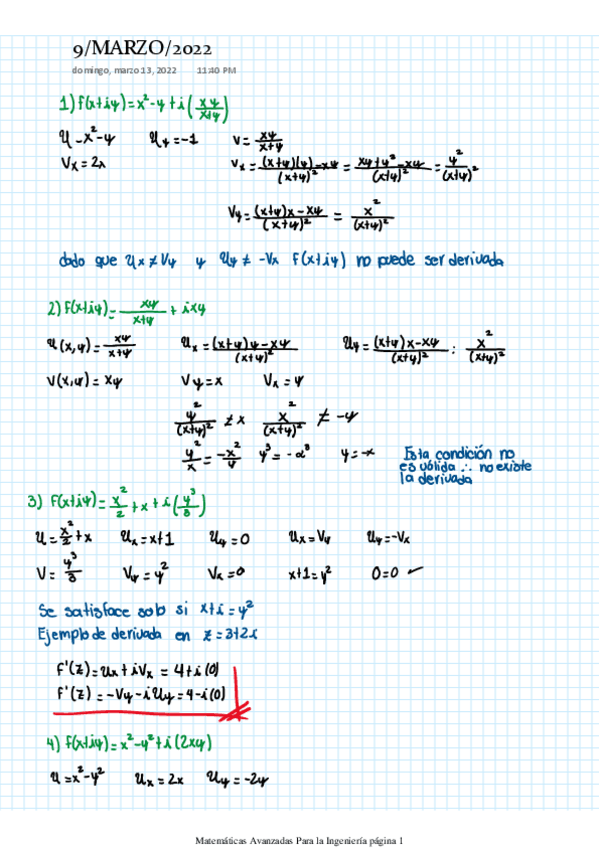 9/MARZO/2022
domingo, marzo 13, 2022 11:40 PM
1) f(x+iy)=x²-y+i(xy/x+y)
U=x²-y Uy=-1 v=xy/x+y
Vx=2x vx=(x+y)(y)-xy/(x+y)²=xy+y²-xy/(x+y)²=y²/(x+y)²
Vy=(x+y)x-xy/(x+y)²=x²/(x+y)²
dado que Ux≠Vy y Uy≠-Vx f(x+iy) no puede ser derivada
2) f(x+iy)=xy/x+y+ixy
U(x,y)=xy/x+y Ux=(x+y)y-xy/(x+y)² Uy=(x+y)x-xy/(x+y)²: x²/(x+y)²
V(x,y)=xy Vy=x Vx=y
y²/(x+y)²≠x x²/(x+y)²≠-y
y²/x=-x²/y y³=-x³ y=-x Esta condición no
es válida ∴ no existe
la derivada
3) f(x+iy)=x²/2+x+i(y³/3)
U=x²/2+x Ux=x+1 Uy=0 Ux=Vy Uy=-Vx
V=y³/3 Vy=y² Vx=0 x+1=y² 0=0 ✓
Se satisface solo si x+1=y²
Ejemplo de derivada en z=3+2i
f'(z)=Ux+iVx=4+i(0)
f'(z)=-Vy-iUy=4-i(0)
4) f(x+iy)=x²-y²+i(2xy)
U=x²-y² Ux=2x Uy=-2y
Matemáticas Avanzadas Para la Ingeniería página 1